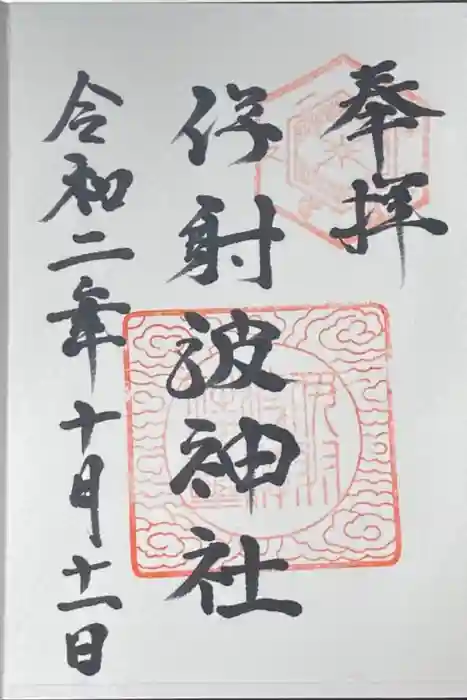 奉拝
伊射波神社
令和二年十月十一日